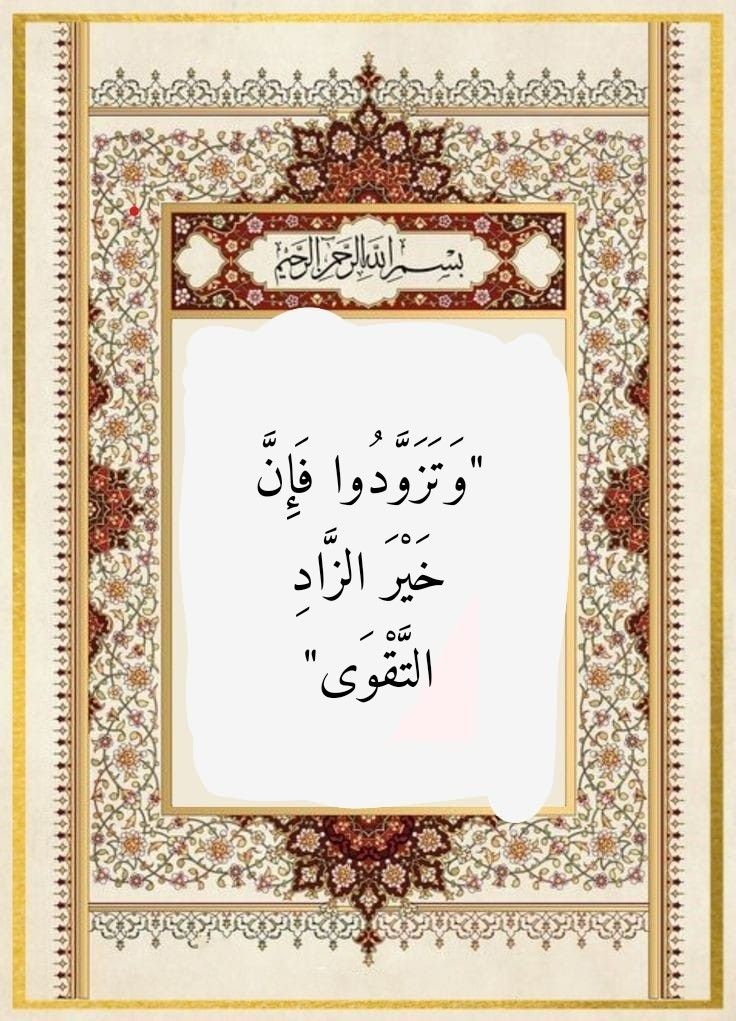 بِسْمِ اللَّهِ الرَّحْمَٰنِ الرَّحِيمِ
"وَتَزَوَّدُوا فَإِنَّ
خَيْرَ الزَّادِ
التَّقْوَى"